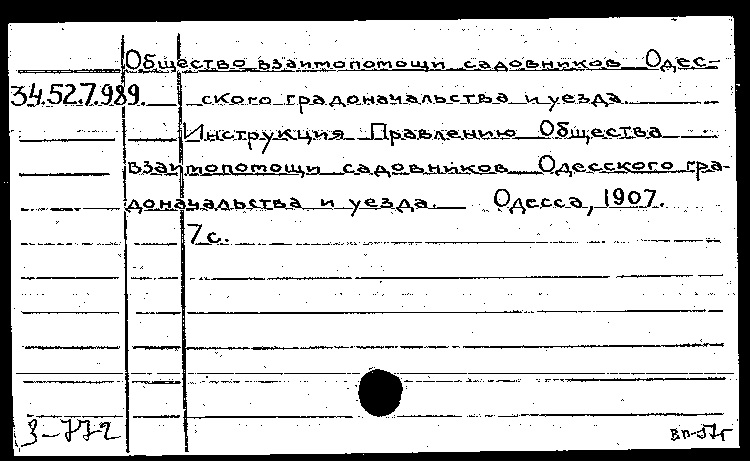 Общество взаимопомощи садовников Одес-
34.52.7.989. ского градоначальства и уезда.
Инструкция Правлению Общества
взаимопомощи садовников Одесского гра-
доначальства и уезда. Одесса, 1907.
7 с.
3-772
вп-57г